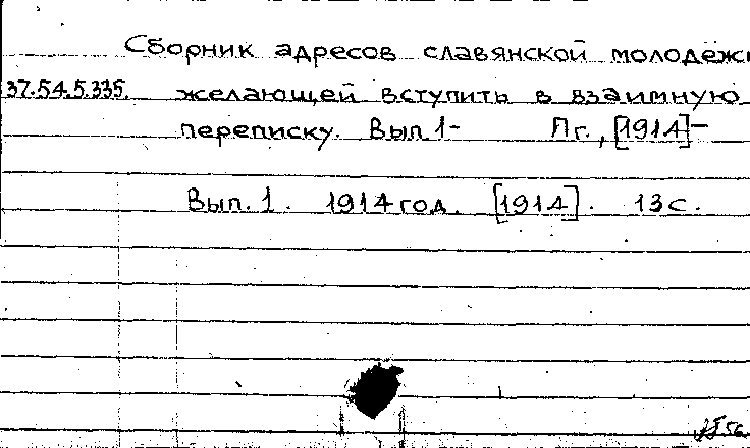 Сборник адресов славянской молодежи
37.54.5.335. желающей вступить в взаимную
переписку. Вып 1- Пг., [1914]-
Вып. 1. 1914 год. [1914]. 13 с.